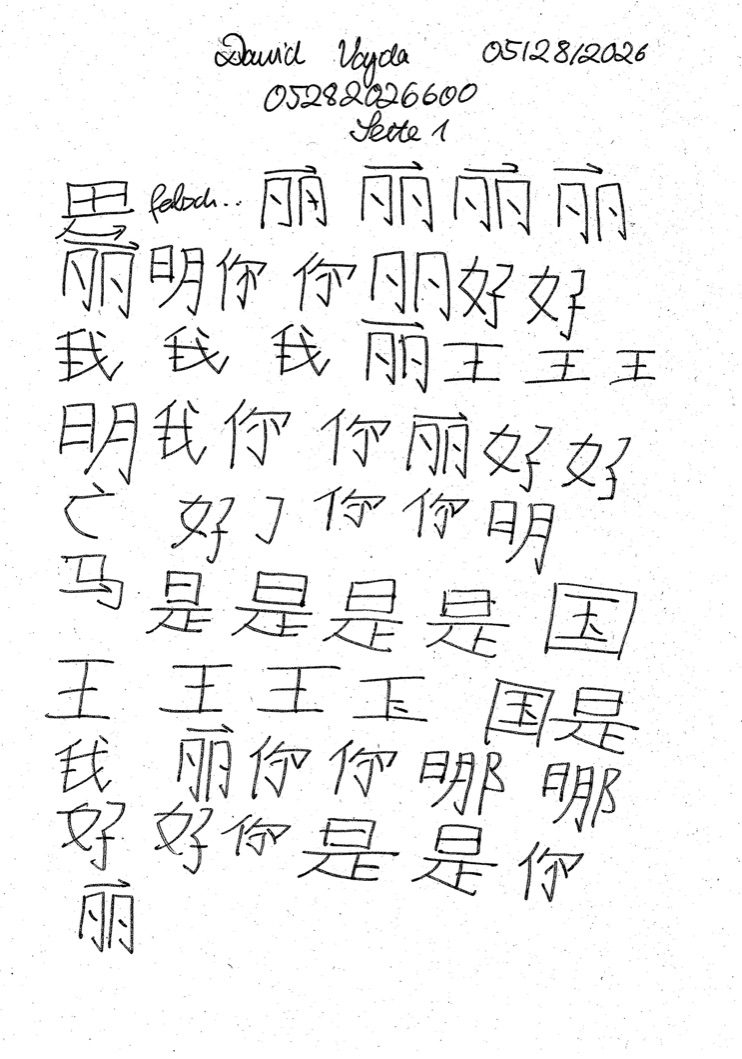 David Vajda 05/28/2026
05282026600
Seite 1
是 falsch.. 丽 丽 丽 丽
丽 明 你 你 丽 好 好
我 我 我 丽 王 王 王
明 我 你 你 丽 好 好
亡 好 了 你 你 明
马 是 是 是 是 国
王 王 王 玉 国 是
我 丽 你 你 哪 哪
好 好 你 是 是 你
丽